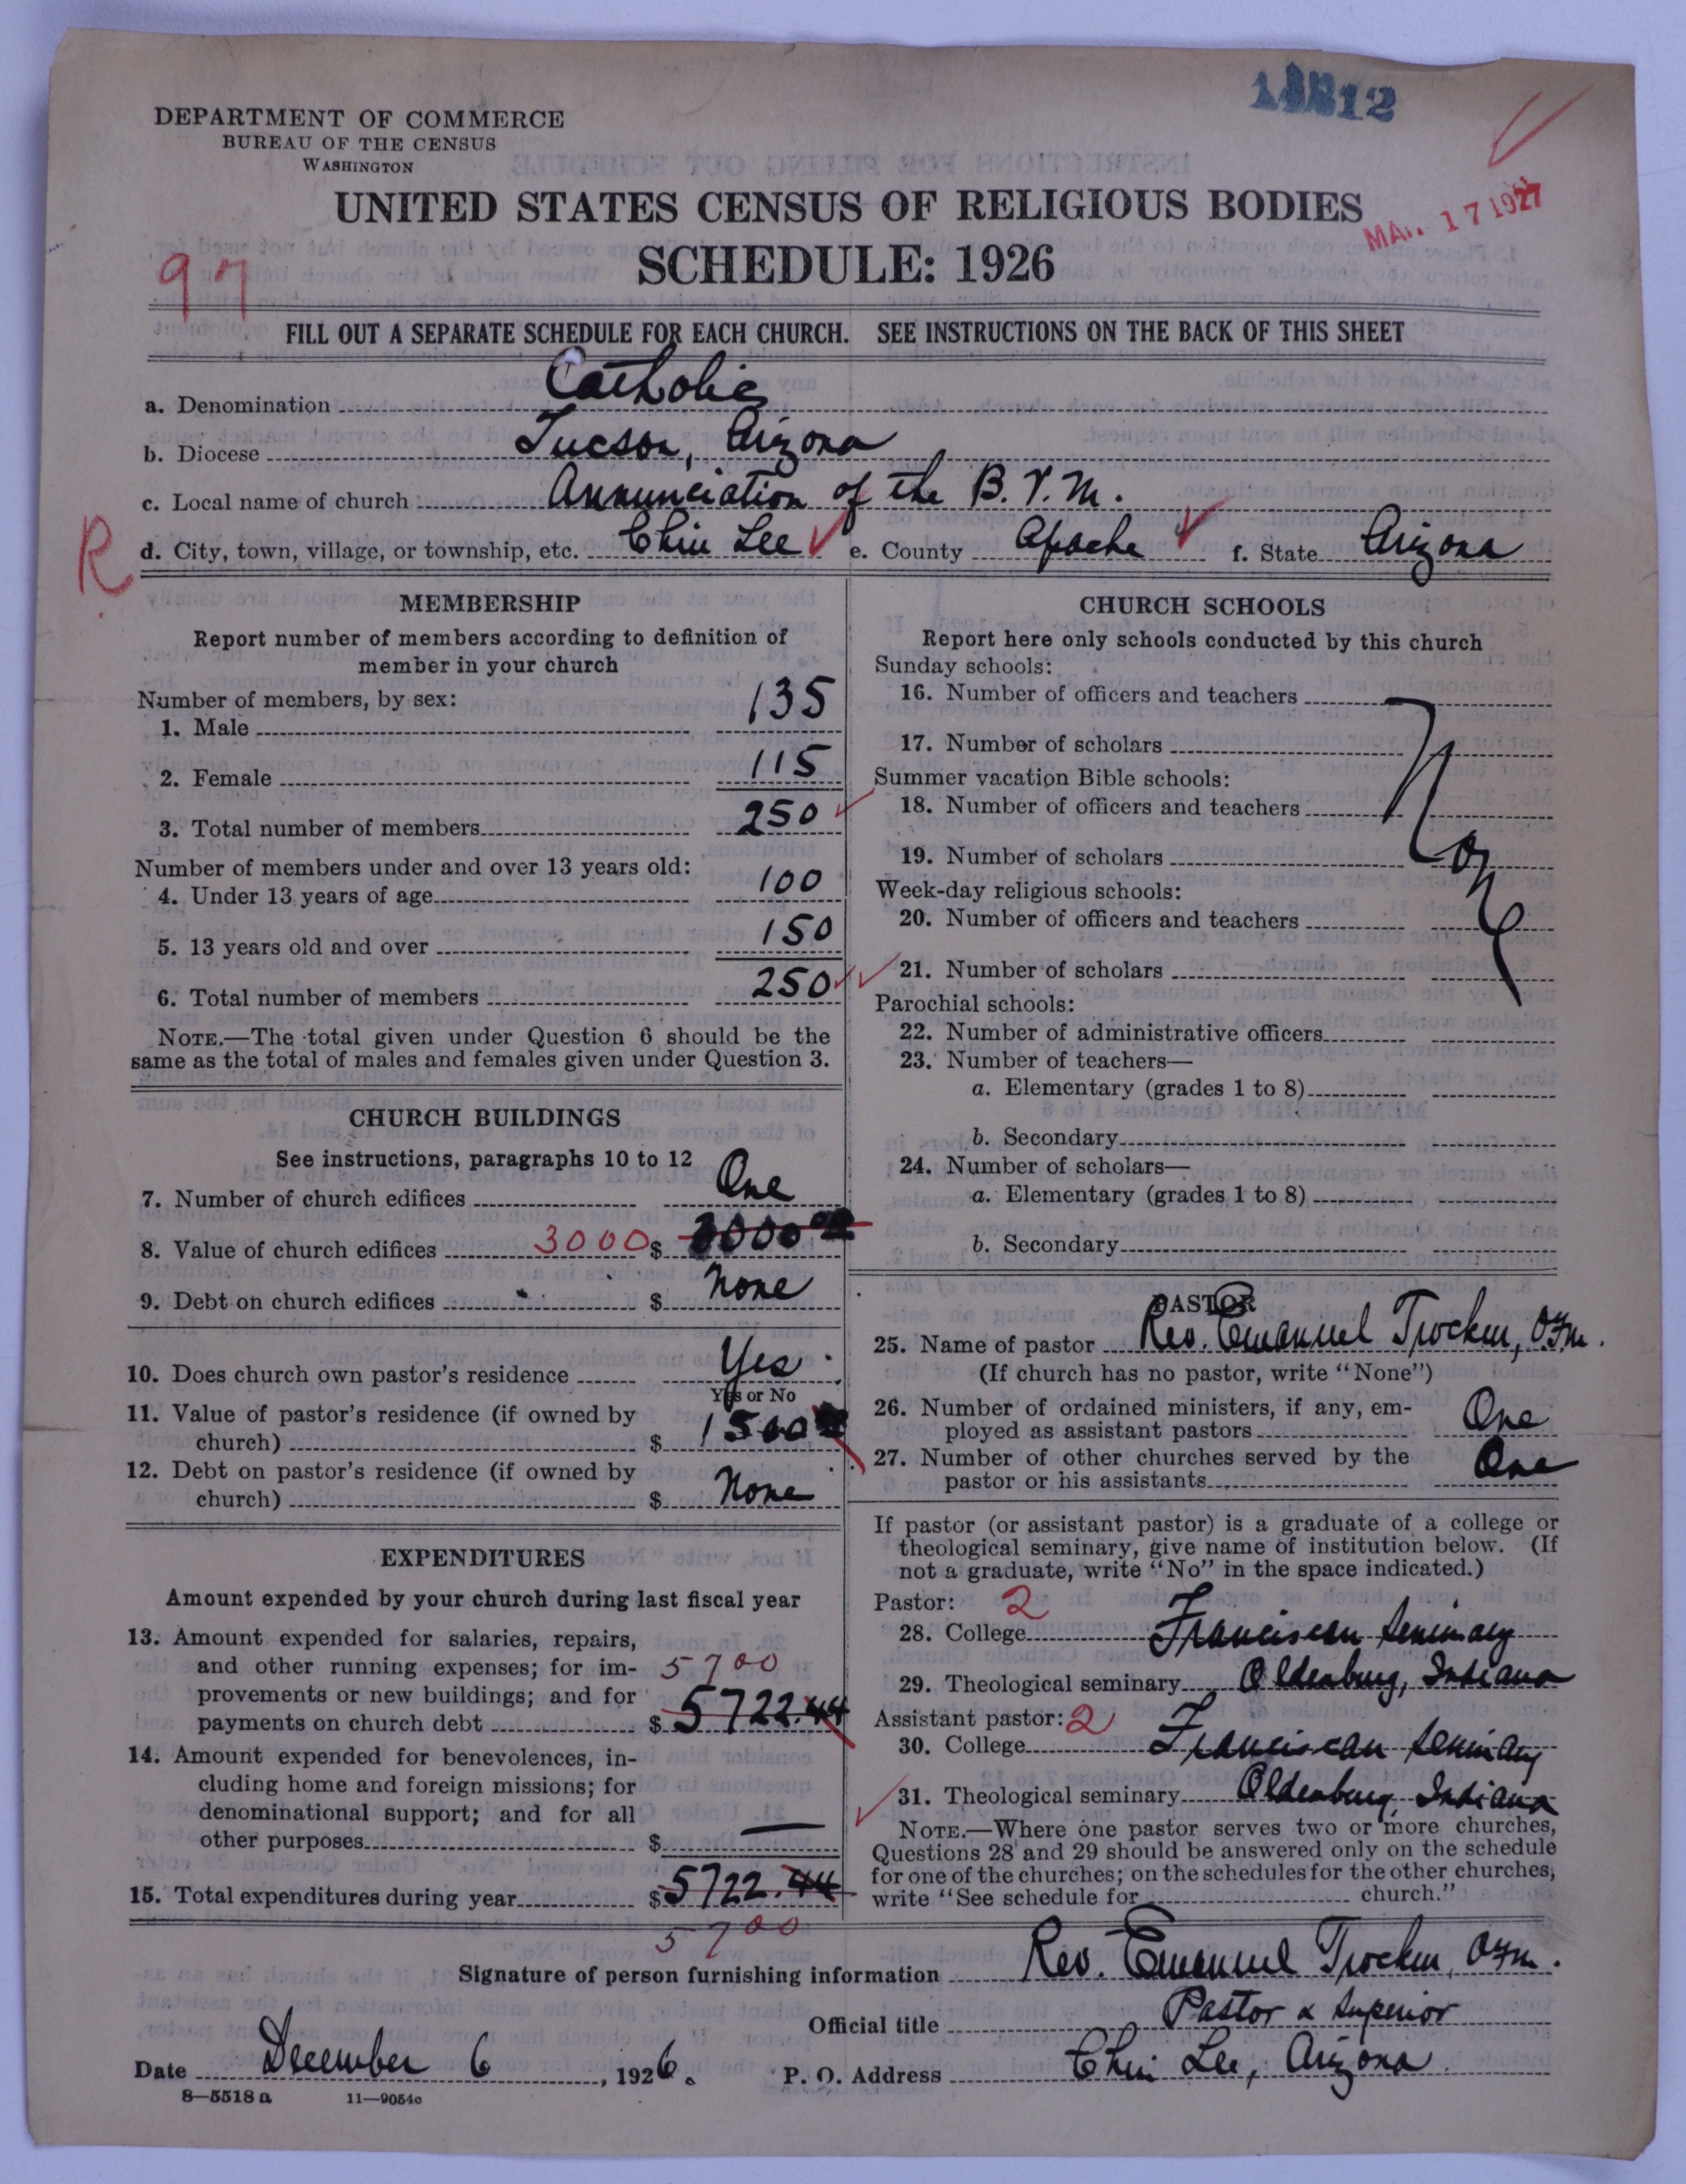 12
DEPARTMENT OF COMMERCE
BUREAU OF THE CENSUS
WASHINGTON
UNITED STATES CENSUS OF RELIGIOUS BODIES
SCHEDULE: 1926
MAR 17 1927
97
FILL OUT A SEPARATE SCHEDULE FOR EACH CHURCH. SEE INSTRUCTIONS ON THE BACK OF THIS SHEET
a. Denomination Catholic
b. Diocese Tucson, Arizona
c. Local name of church Annunciation of the B.V.M.
R
d. City, town, village, or township, etc. Chin Lee e. County Apache f. State Arizona
MEMBERSHIP
Report number of members according to definition of
member in your church
Number of members, by sex:
1. Male 135
2. Female 115
3. Total number of members 250
Number of members under and over 13 years old:
4. Under 13 years of age 100
5. 13 years old and over 150
6. Total number of members 250
NOTE.—The total given under Question 6 should be the
same as the total of males and females given under Question 3.
CHURCH BUILDINGS
See instructions, paragraphs 10 to 12
7. Number of church edifices One
8. Value of church edifices 3000 $ 3000 00
9. Debt on church edifices $ None
10. Does church own pastor's residence Yes
Yes or No
11. Value of pastor's residence (if owned by
church) $ 1500
12. Debt on pastor's residence (if owned by
church) $ None
EXPENDITURES
Amount expended by your church during last fiscal year
13. Amount expended for salaries, repairs,
and other running expenses; for im- 5700
provements or new buildings; and for
payments on church debt $ 5722.44
14. Amount expended for benevolences, in-
cluding home and foreign missions; for
denominational support; and for all
other purposes $ —
15. Total expenditures during year $ 5722.44
5700
CHURCH SCHOOLS
Report here only schools conducted by this church
Sunday schools:
16. Number of officers and teachers
17. Number of scholars
Summer vacation Bible schools:
18. Number of officers and teachers
19. Number of scholars
None
Week-day religious schools:
20. Number of officers and teachers
21. Number of scholars
Parochial schools:
22. Number of administrative officers
23. Number of teachers—
a. Elementary (grades 1 to 8)
b. Secondary
24. Number of scholars—
a. Elementary (grades 1 to 8)
b. Secondary
PASTOR
25. Name of pastor Rev. Emanuel Trockur, O.F.M.
(If church has no pastor, write "None")
26. Number of ordained ministers, if any, em-
ployed as assistant pastors One
27. Number of other churches served by the
pastor or his assistants One
If pastor (or assistant pastor) is a graduate of a college or
theological seminary, give name of institution below. (If
not a graduate, write "No" in the space indicated.)
Pastor: 2
28. College Franciscan Seminary
29. Theological seminary Oldenburg, Indiana
Assistant pastor: 2
30. College Franciscan Seminary
31. Theological seminary Oldenburg, Indiana
NOTE.—Where one pastor serves two or more churches,
Questions 28 and 29 should be answered only on the schedule
for one of the churches; on the schedules for the other churches,
write "See schedule for church."
Signature of person furnishing information Rev. Emanuel Trockur, O.F.M.
Official title Pastor & Superior
Date December 6, 1926. P. O. Address Chin Lee, Arizona
8—5518 a 11—9054c